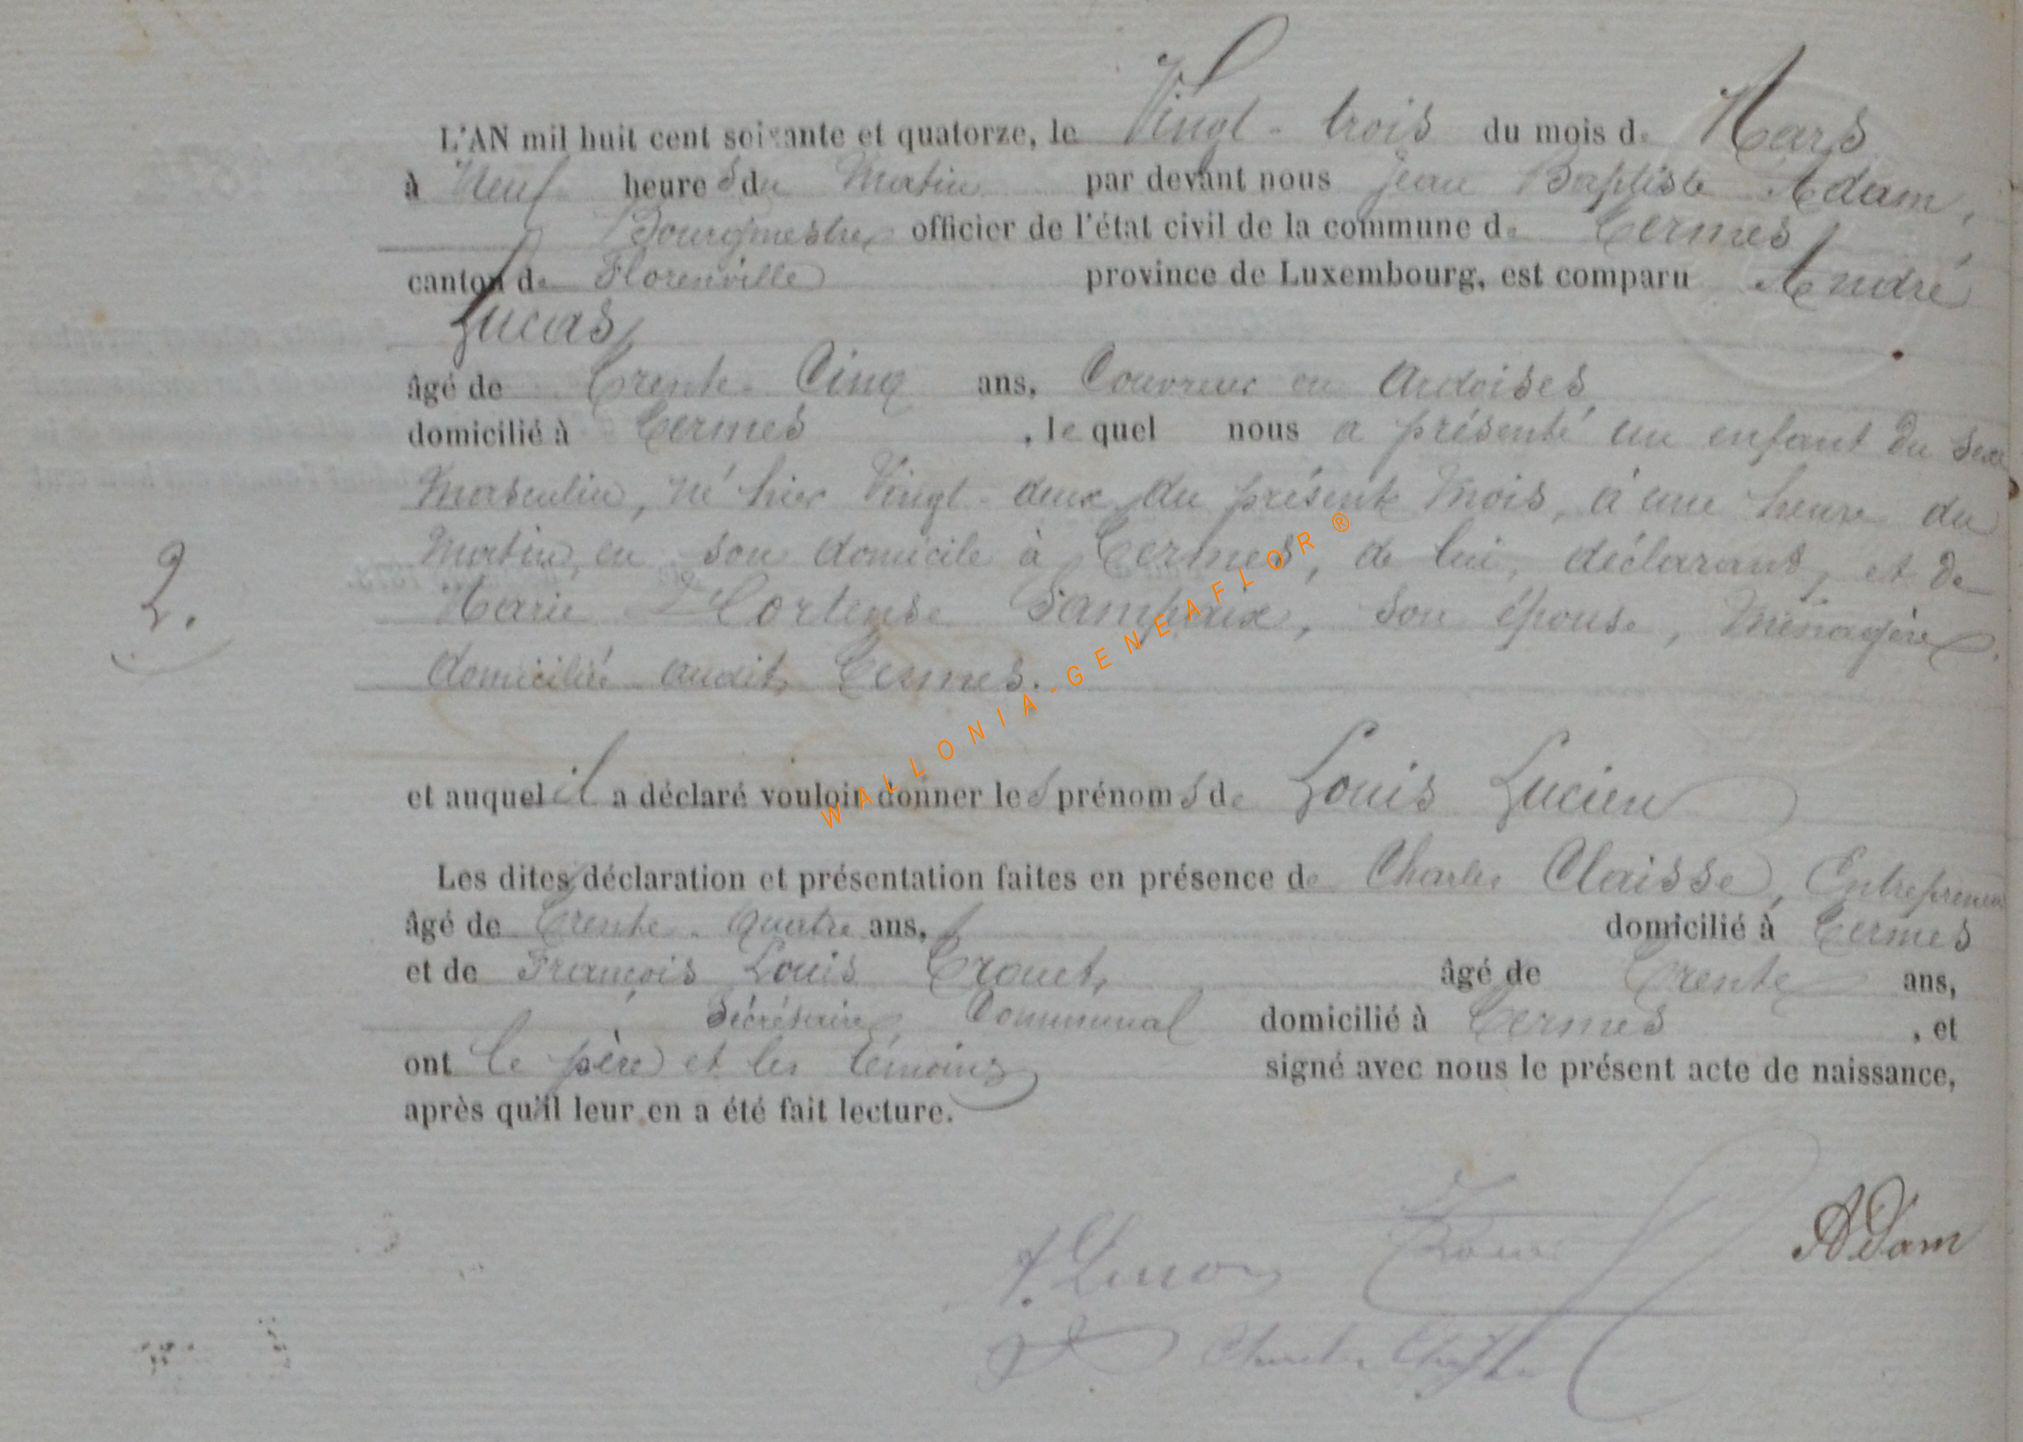 L'AN mil huit cent soixante et quatorze, le Vingt-trois du mois de Mars
à Neuf heures du Matin par devant nous Jean Baptiste Adam,
Bourgmestre officier de l'état civil de la commune de Termes,
canton de Florenville province de Luxembourg, est comparu André
Lucas,
âgé de Trente-Cinq ans, Couvreur en Ardoises
domicilié à Termes, lequel nous a présenté un enfant du Sexe
Masculin, né hier Vingt-deux du présent Mois, à une heure du
Matin, en son domicile à Termes, de lui, déclarant, et de
Marie Hortense Sampaix, son épouse, Ménagère,
2.
domiciliée audit Termes.
et auquel il a déclaré vouloir donner les prénoms de Louis Lucien
Les dites déclaration et présentation faites en présence de Charles Claisse, Entrepreneur
âgé de Trente-quatre ans, domicilié à Termes
et de François Louis Trouet, âgé de Trente ans,
Secrétaire Communal domicilié à Termes, et
ont le père et les témoins signé avec nous le présent acte de naissance,
après qu'il leur en a été fait lecture.
ADam
WALLONIA-GENEAFLOR®